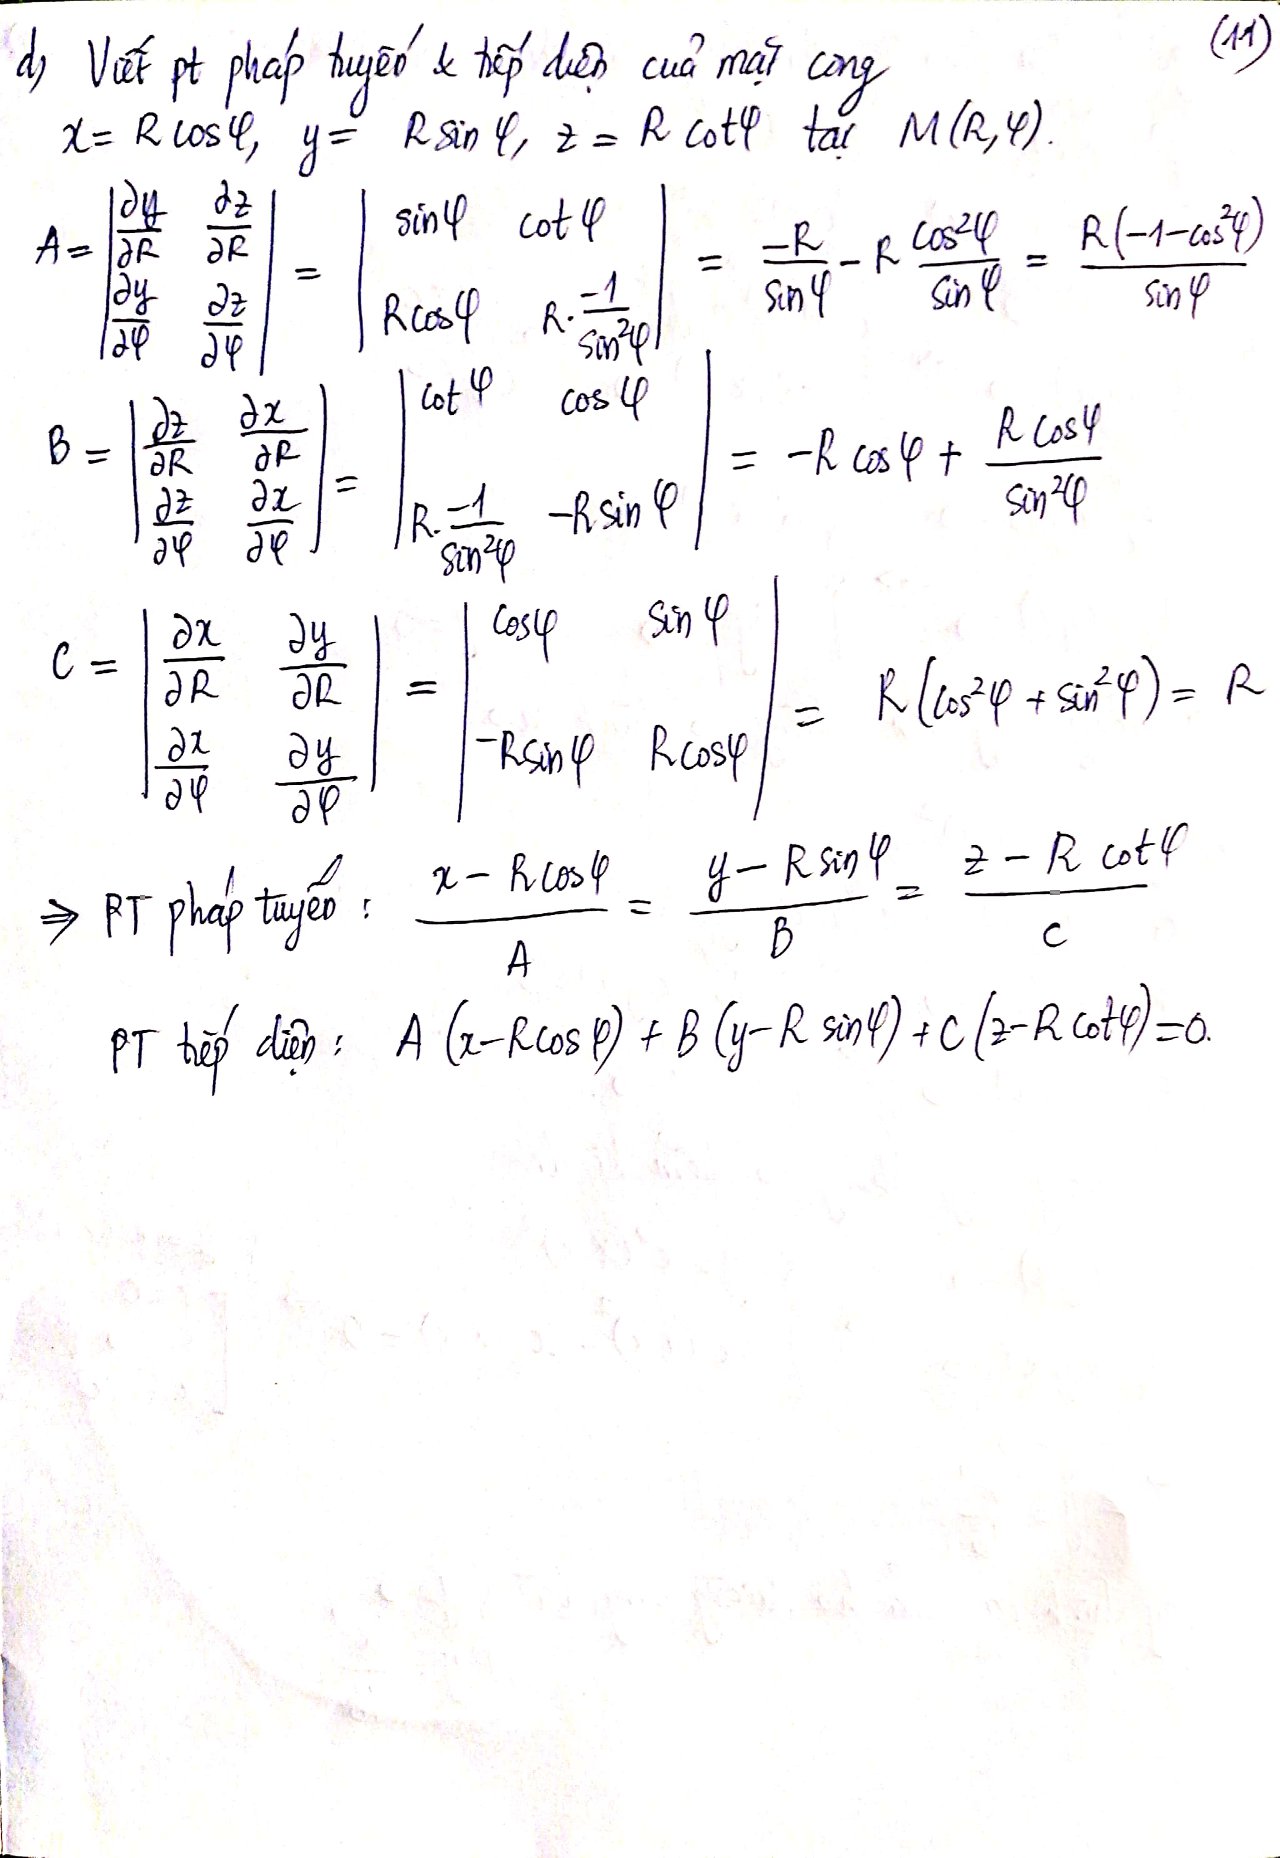 (11)
d) Viết pt pháp tuyến & tiếp diện của mặt cong
x = R cosφ, y = R sinφ, z = R cotφ tại M(R, φ).
A = |∂y/∂R ∂z/∂R; ∂y/∂φ ∂z/∂φ| = |sinφ cotφ; Rcosφ R·(-1/sin²φ)| = -R/sinφ - R cos²φ/sinφ = R(-1-cos²φ)/sinφ
B = |∂z/∂R ∂x/∂R; ∂z/∂φ ∂x/∂φ| = |cotφ cosφ; R·(-1/sin²φ) -R sinφ| = -R cosφ + R cosφ/sin²φ
C = |∂x/∂R ∂y/∂R; ∂x/∂φ ∂y/∂φ| = |cosφ sinφ; -Rsinφ Rcosφ| = R(cos²φ + sin²φ) = R
⇒ PT pháp tuyến: (x - Rcosφ)/A = (y - R sinφ)/B = (z - R cotφ)/C
PT tiếp diện: A(x-Rcosφ) + B(y-R sinφ) + C(z-R cotφ)=0.